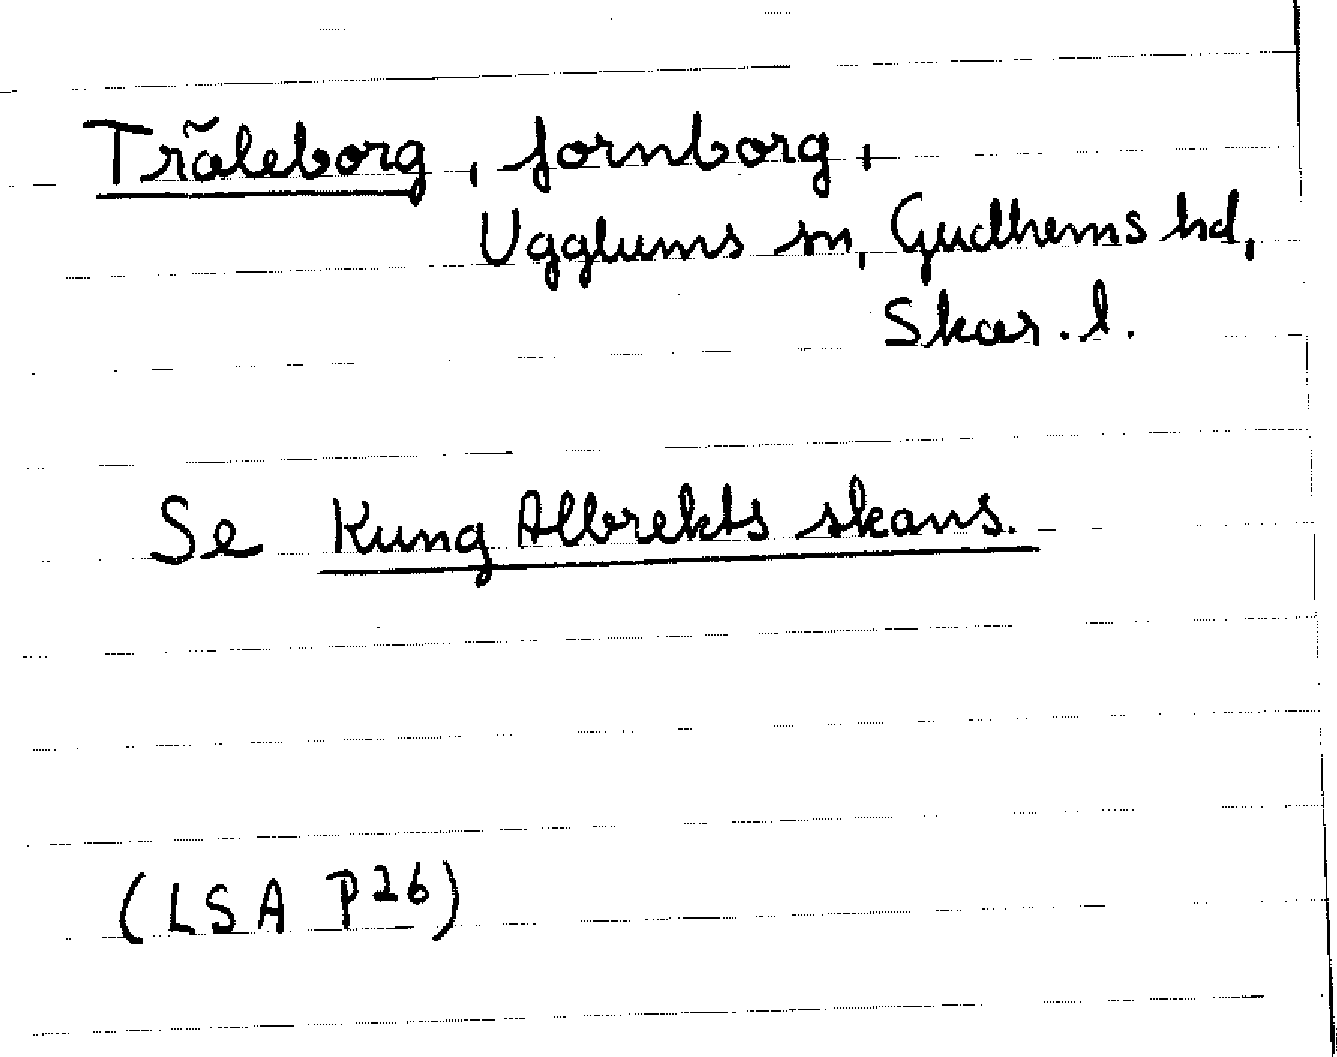 Träleborg, fornborg,
Ugglums sn, Gudhems hd,
Skar. l.
Se Kung Albrekts skans.
(LSA P26)